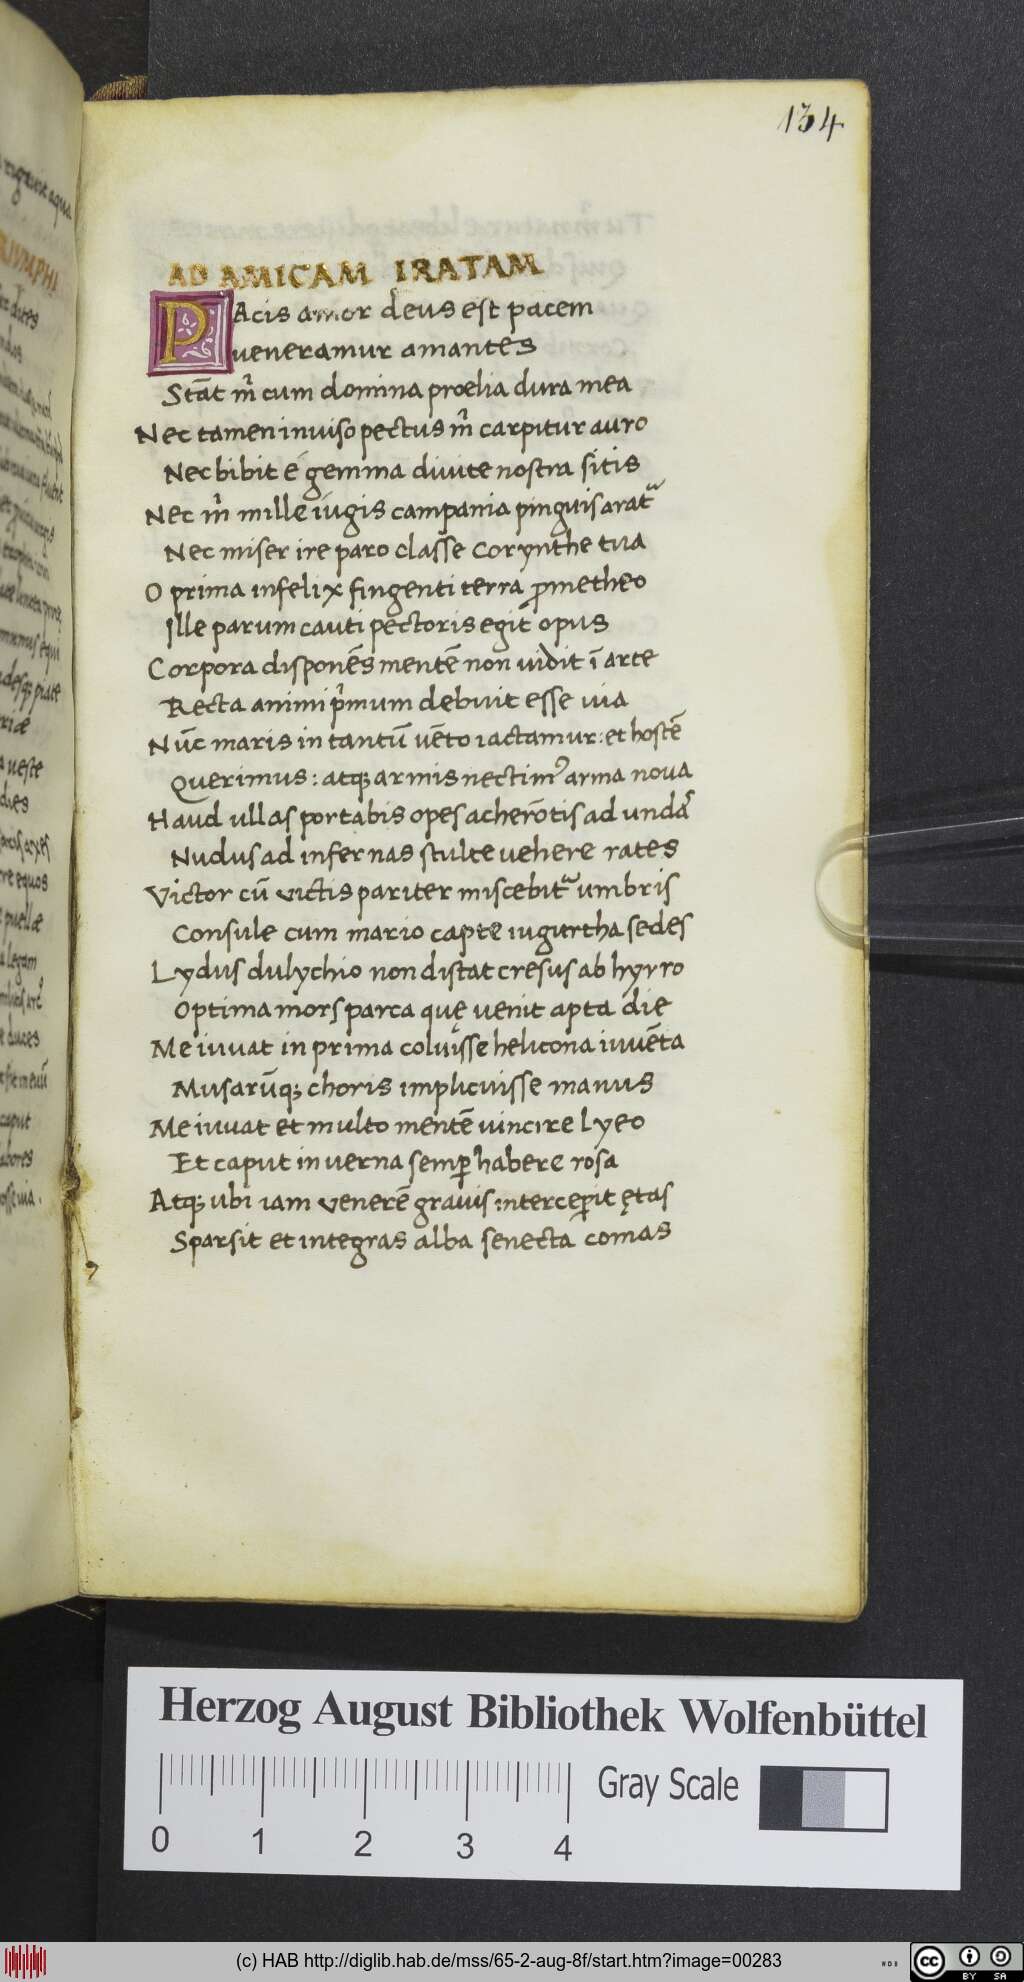 134
AD AMICAM IRATAM
PAcis amor deus est pacem
veneramur amantes
Stāt m̄ cum domina proelia dura mea
Nec tamen inviso pectus m̄ carpitur auro
Nec bibit é gemma divite nostra sitis
Nec m̄ mille iugis campania pinguis arat᷑
Nec miser ire paro classe Corynthe tua
O prima infelix fingenti terra ꝓmetheo
Ille parum cauti pectoris egit opus
Corpora disponēs mentē non vidit ī arte
Recta animi p̄mum debuit esse via
Nūc maris in tantū vēto iactamur: et hostē
Querimus: atq; armis nectim᾽ arma nova
Haud ullas portabis opes acherōtis ad undas
Nudus ad infernas stulte vehere rates
Victor cū victis pariter miscebit᷑ umbris
Consule cum mario capte iugurtha sedes
Lydus dulychio non distat cresus ab hyrro
Optima mors parca quę venit apta die
Me iuvat in prima coluisse helicona iuvēta
Musarūq; choris implicuisse manus
Me iuvat et multo mentē vincire lyeo
Et caput in verna semꝑ habere rosa
Atq; ubi iam venerē gravis interceꝑit ętas
Sparsit et integras alba senecta comas
Herzog August Bibliothek Wolfenbüttel
0 1 2 3 4 Gray Scale
(c) HAB http://diglib.hab.de/mss/65-2-aug-8f/start.htm?image=00283
cc BY SA